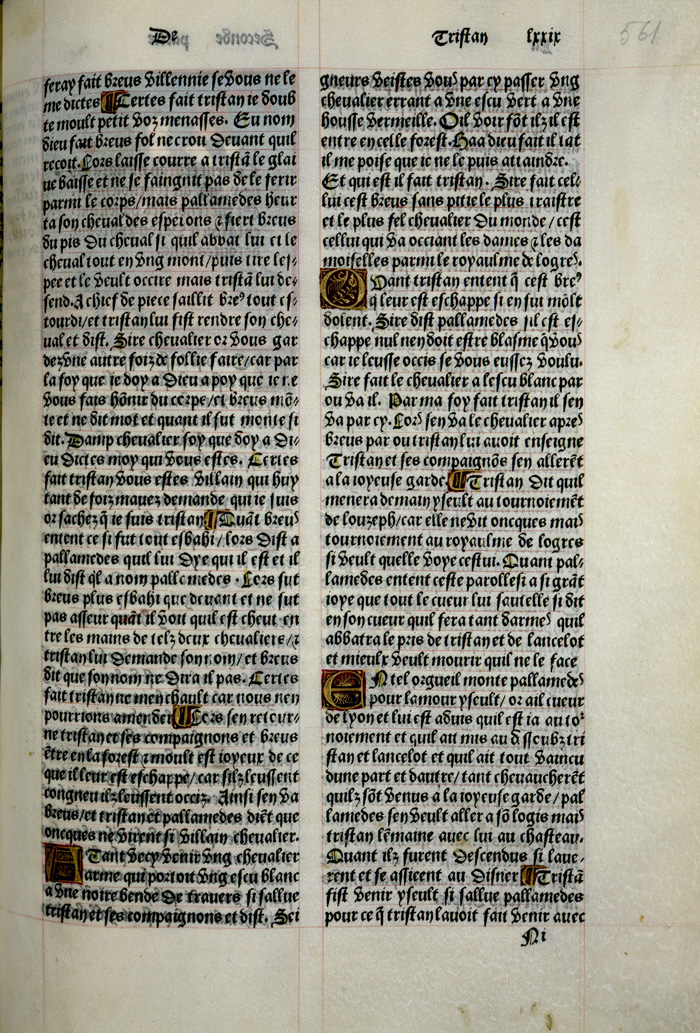 De Tristan lxxix 561
feray fait breus villennie se vous ne le
me dictes Certes fait tristan ie doub
te moult petit voz menasses. Eu nom
dieu fait breus fol ne crou deuant quil
recoit. Lors laisse courre a tristā le glai
ue baisse et ne se faingnit pas de le ferir
parmi le corps/mais pallamedes heur
ta son cheual des esperons ⁊ fiert breus
du pis du cheual si quil abbat lui et le
cheual tout en vng mont/puis tire les⸗
pee et le veult occire mais tristā lui de⸗
fend. A chief de piece saillit breꝰ tout es⸗
tourdi/et tristan lui fist rendre son che⸗
ual et dist. Sire cheualier or vous gar
dez vne autre foiz de follie faire/car par
la foy que ie doy a Dieu a poy que ie ne
vous fais hōnir du corps/et breus mō⸗
te et ne dit mot et quant il fut monte si
dit. Damp cheualier foy que doy a Di⸗
eu Dictes moy qui vous estes. Certes
fait tristan vous estes villain qui huy
tant de foiz mauez demande qui ie suis
or sachez q̄ ie suis tristan Quāt breus
entent ce si fut tout esbahi/ lors Dist a
pallamedes quil lui Dye qui il est et il
lui dist ql̄ a nom pallamedes. Lors fut
breus plus esbahi que deuant et ne fut
pas asseur quāt il voit quil est cheut en
tre les mains de telz deux cheualiers/⁊
tristan lui Demande son nom/ et breus
dit que son nom ne Dira il pas. Certes
fait tristan ne men chault car nous nen
pourrions amender Lors sen retour⸗
ne tristan et ses compaignons et breus
ētre en la forest ⁊ moult est ioyeux de ce
que il leur est eschappe/car silz leussent
congneu ilz leussent occiz. Ainsi sen va
breus/et tristan et pallamedes diēt que
oncques ne virent si villain cheualier.
A Tant vecy venir vng cheualier
arme qui portoit vng escu blanc
a vne noire bende De trauers si sallue
tristan et ses compaignons et dist. Sei
gneurs veistes vous par cy passer vng
cheualier errant a vne escu vert a vne
housse vermeille. Oil voir fōt ilz il est
entre en celle forest. Haa dieu fait il tāt
il me poise que ie ne le puis attaindre.
Et qui est il fait tristan. Sire fait cel⸗
lui cest breus sans pitie le plus traistre
et le plus fel cheualier Du monde/ cest
cellui qui va occiant les dames ⁊ les da
moiselles parmi le royaulme de logres.
Quant tristan entent q̄ cest breꝰ
q̄ leur est eschappe si en fut mōlt
dolent. Sire dist pallamedes sil est es⸗
chappe nul nen doit estre blasme q̄ vous
car ie leusse occis se vous eussez voulu.
Sire fait le cheualier a lescu blanc par
ou va il. Par ma foy fait tristan il sen
va par cy. Lors sen va le cheualier apres
breus par ou tristan lui auoit enseigne
Tristan et ses compaignōs sen allerēt
a la ioyeuse garde. Tristan Dit quil
menera demain yseult au tournoiemēt
de louzeph/car elle ne vit oncques mais
tournoiement au royaulme de logres
si veult quelle voye cestui. Quant pal⸗
lamedes entent ceste parolle si a si grāt
ioye que tout le cueur lui sautelle si dit
en son cueur quil fera tant darmes quil
abbatra le pris de tristan et de lancelot
et mieulx veult mourir quil ne le face
En tel orgueil monte pallamedes
pour lamour yseult/ or a il cueur
de lyon et lui est aduis quil est ia au tor
noiement et quil ait mis au dessoubz tri
stan et lancelot et quil ait tout vaincu
dune part et dautre/ tant cheuaucherēt
quilz sōt venus a la ioyeuse garde/ pal
lamedes sen veult aller a sō logis mais
tristan lēmaine auec lui au chasteau.
Quant ilz furent Descendus si laue⸗
rent et se assirent au Disner Tristā
fist venir yseult si sallue pallamedes
pour ce q̄ tristan lauoit fait venir auec
Ni